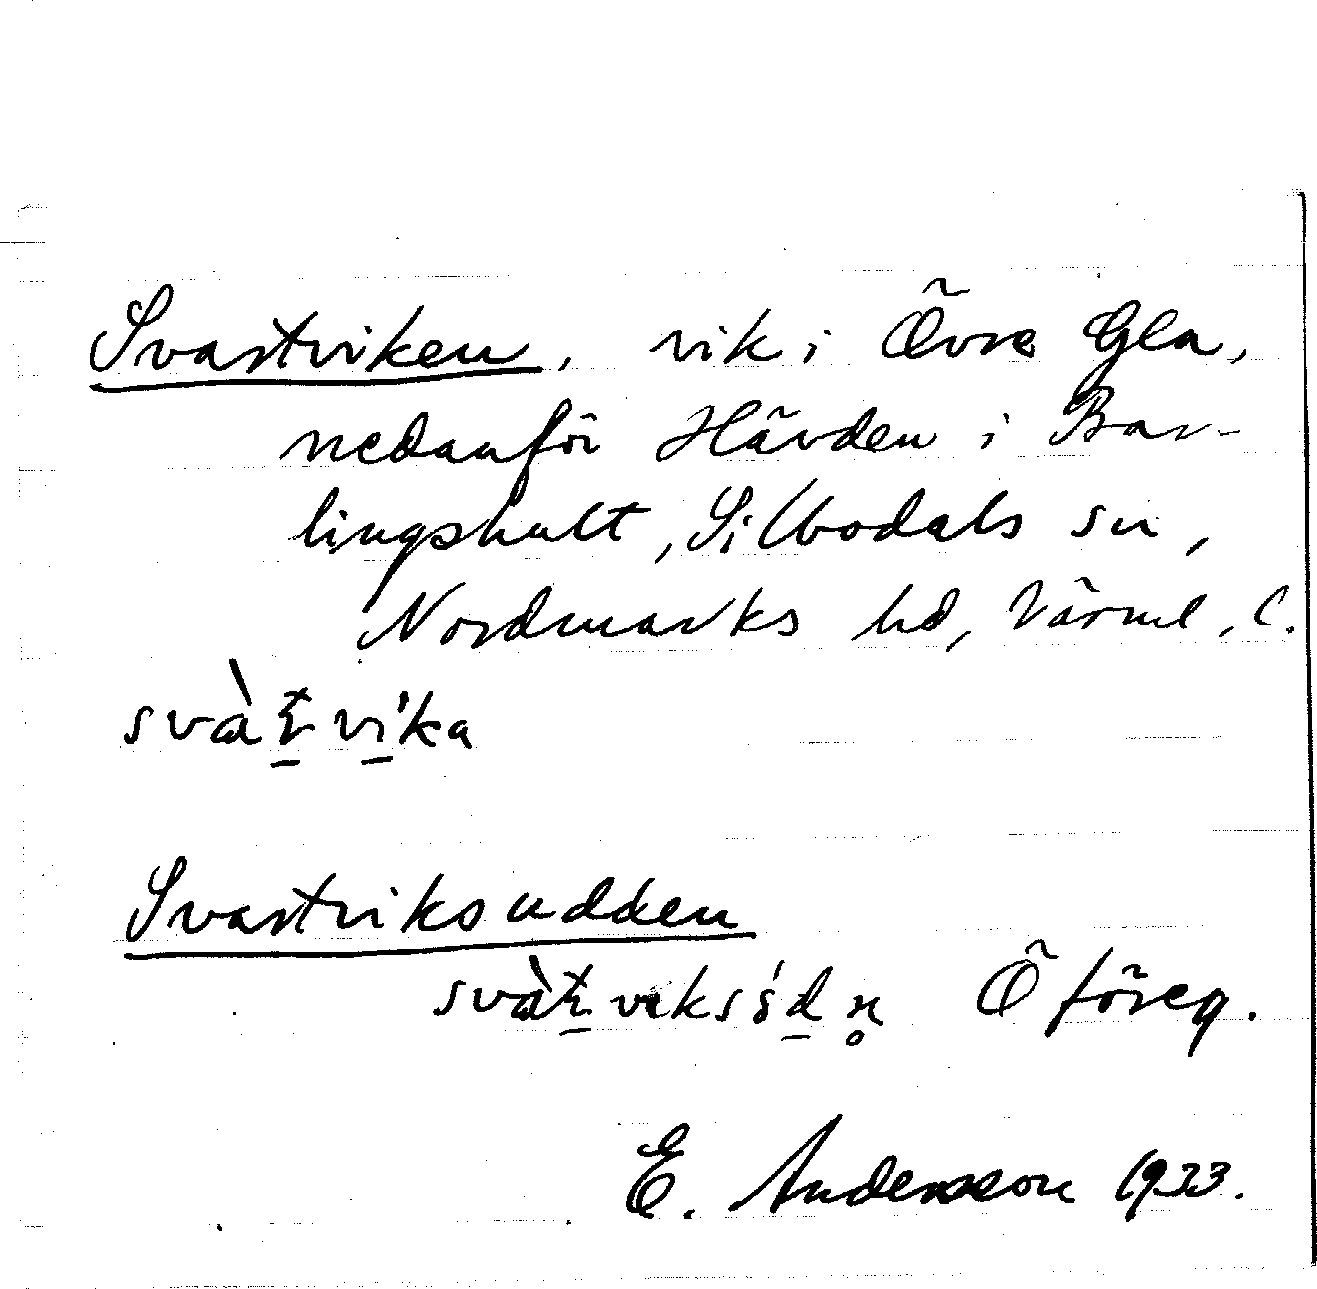 Svartviken, vik i Övre Gla,
nedanför Hävden i Bar-
lingshult, Silbodals sn,
Nordmarks hd, Värml. l.
Svartviksudden
Ö föreg.
E. Andersson 1933.